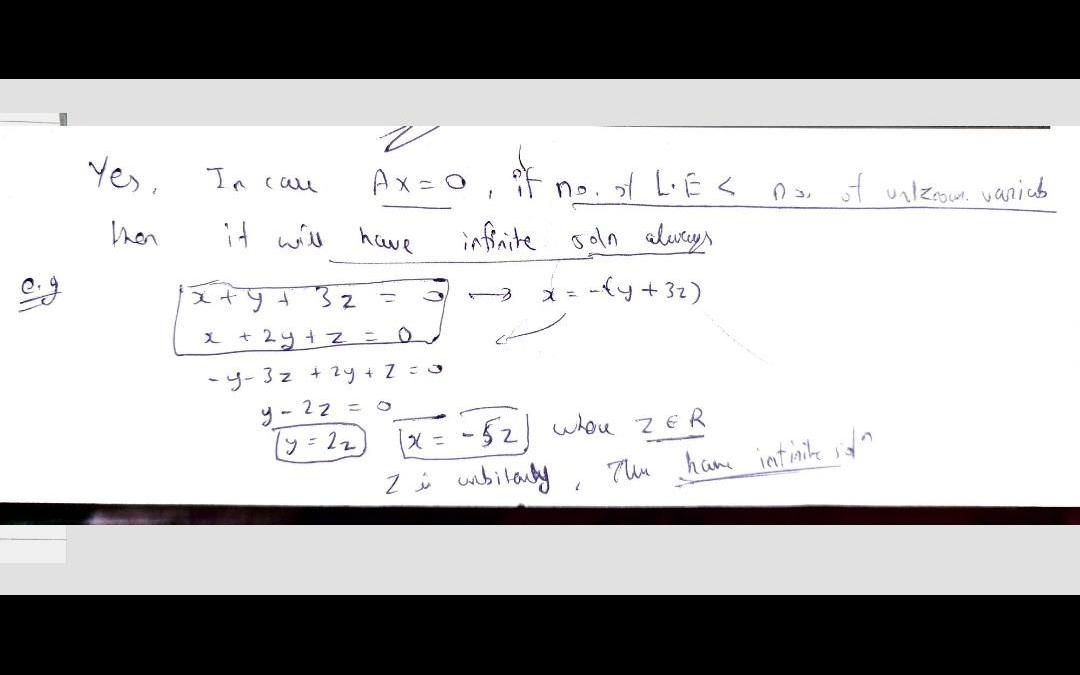 Yes, In case AX=0, if no. of L.E < no. of unknown variab
then it will have infinite soln always
e.g x + y + 3z = 0 → x = -(y+3z)
x + 2y + z = 0
-y-3z + 2y + z = 0
y - 2z = 0
y = 2z x = -5z where z ∈ R
z is arbitrary, have infinite soln